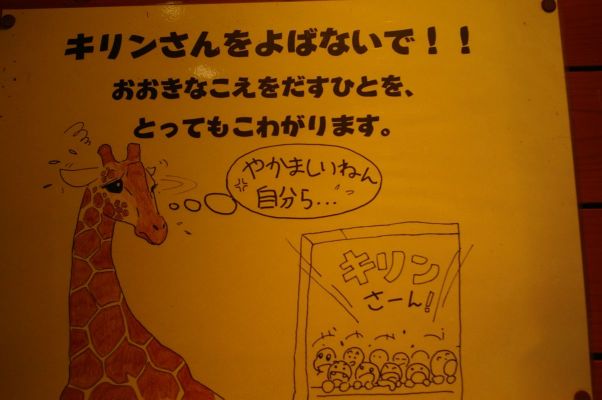 キリンさんをよばないで！！
おおきなこえをだすひとを、
とってもこわがります。
やかましいねん
自分ら…
キリン
さーん!